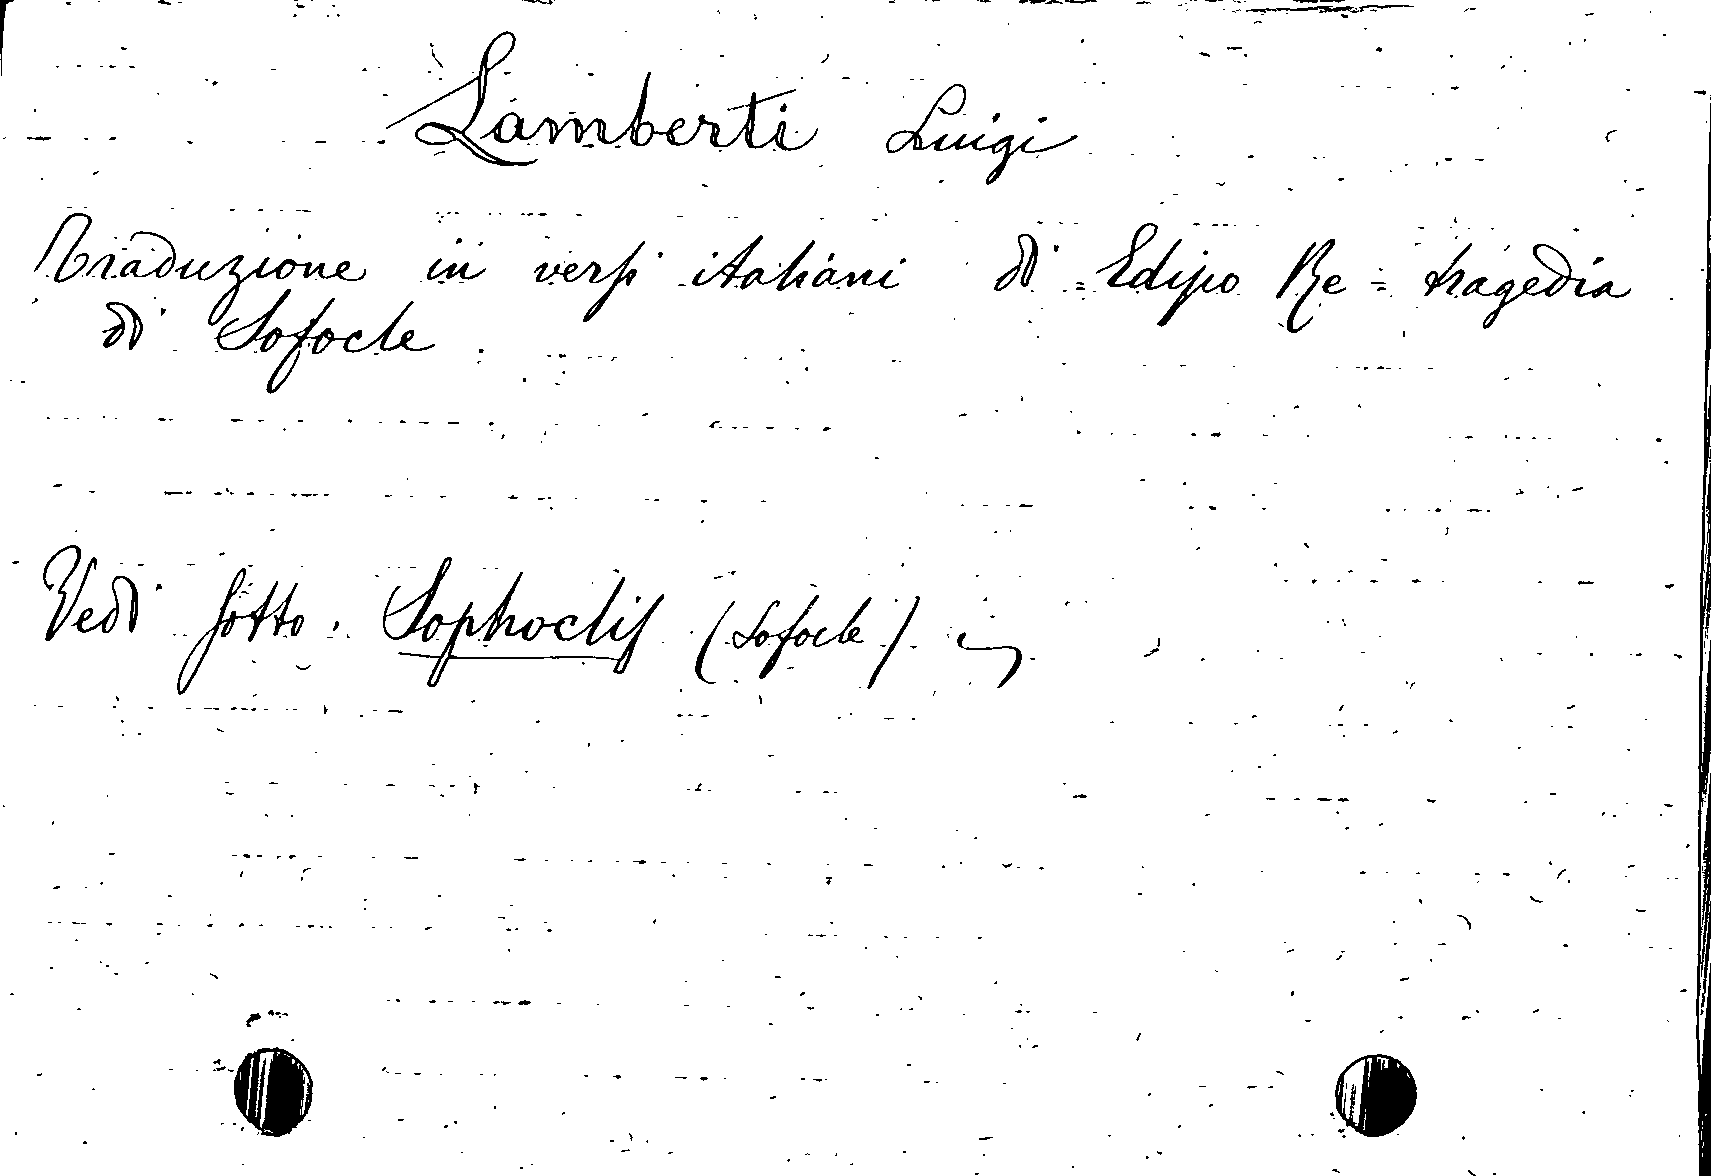 Lamberti Luigi
Traduzione in versi italiani di = Edipo Re = tragedia
di Sofocle.
Vedi sotto. Sophoclis (Sofocle)